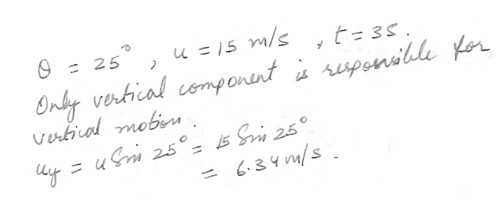 θ = 25°, u = 15 m/s, t = 3s.
Only vertical component is responsible for
vertical motion.
uy = u Sin 25° = 15 Sin 25°
= 6.34 m/s.